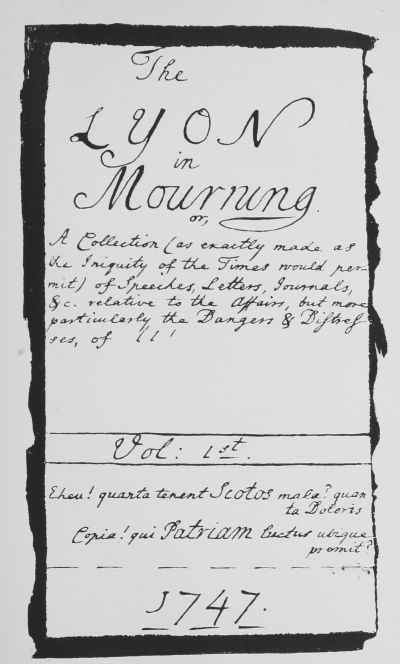 The
LYON
in
Mourning.
or,
A Collection (as exactly made as
the Iniquity of the Times would per-
mit) of Speeches, Letters, Journals,
&c. relative to the Affairs, but more
particularly the Dangers & Distref-
ses, of
Vol: 1st.
Eheu! quanta tenent Scotos mala? quan
ta Doloris
Copia! qui Patriam luctus ubique
premit?
1747.